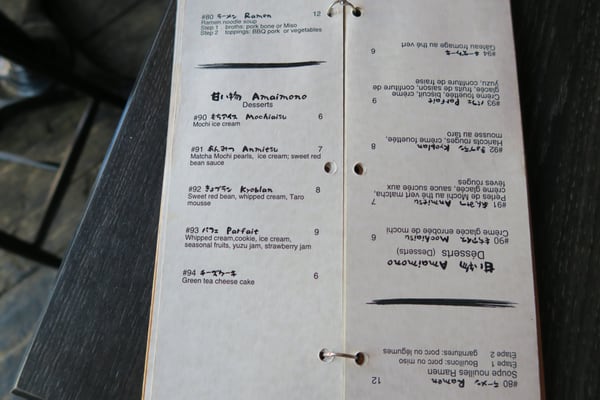 #80 ラーメン Ramen 12
Ramen noodle soup
Step 1 broths: pork bone or Miso
Step 2 toppings: BBQ pork or vegetables
甘い物 Amaimono
Desserts
#90 もちアイス Mochiaisu 6
Mochi ice cream
#91 あんみつ Anmitsu 7
Matcha Mochi pearls, ice cream; sweet red
bean sauce
#92 きょブラン Kyoblan 8
Sweet red bean, whipped cream, Taro
mousse
#93 パフェ Parfait 9
Whipped cream,cookie, ice cream,
seasonal fruits, yuzu jam, strawberry jam
#94 チーズケーキ 6
Green tea cheese cake
#80 ラーメン Ramen 12
Soupe nouilles Ramen
Etape 1 Bouillons: porc ou miso
Etape 2 garnitures: porc ou légumes
甘い物 Amaimono
Désserts (Desserts)
#90 もちアイス Mochiaisu 6
Crème glacée enrobée de mochi
#91 あんみつ Anmitsu 7
Perles de Mochi au perles, matcha,
crème glacée, sauce sucrée aux
fèves rouges
#92 きょブラン Kyoblan 8
Haricots rouges, crème fouettée,
mousse au taro
#93 パフェ Parfait 9
Crème fouettée, biscuit, crème
glacée, fruits de saison, confiture de
yuzu, confiture de fraise
#94 チーズケーキ 6
Gâteau fromage au thé vert